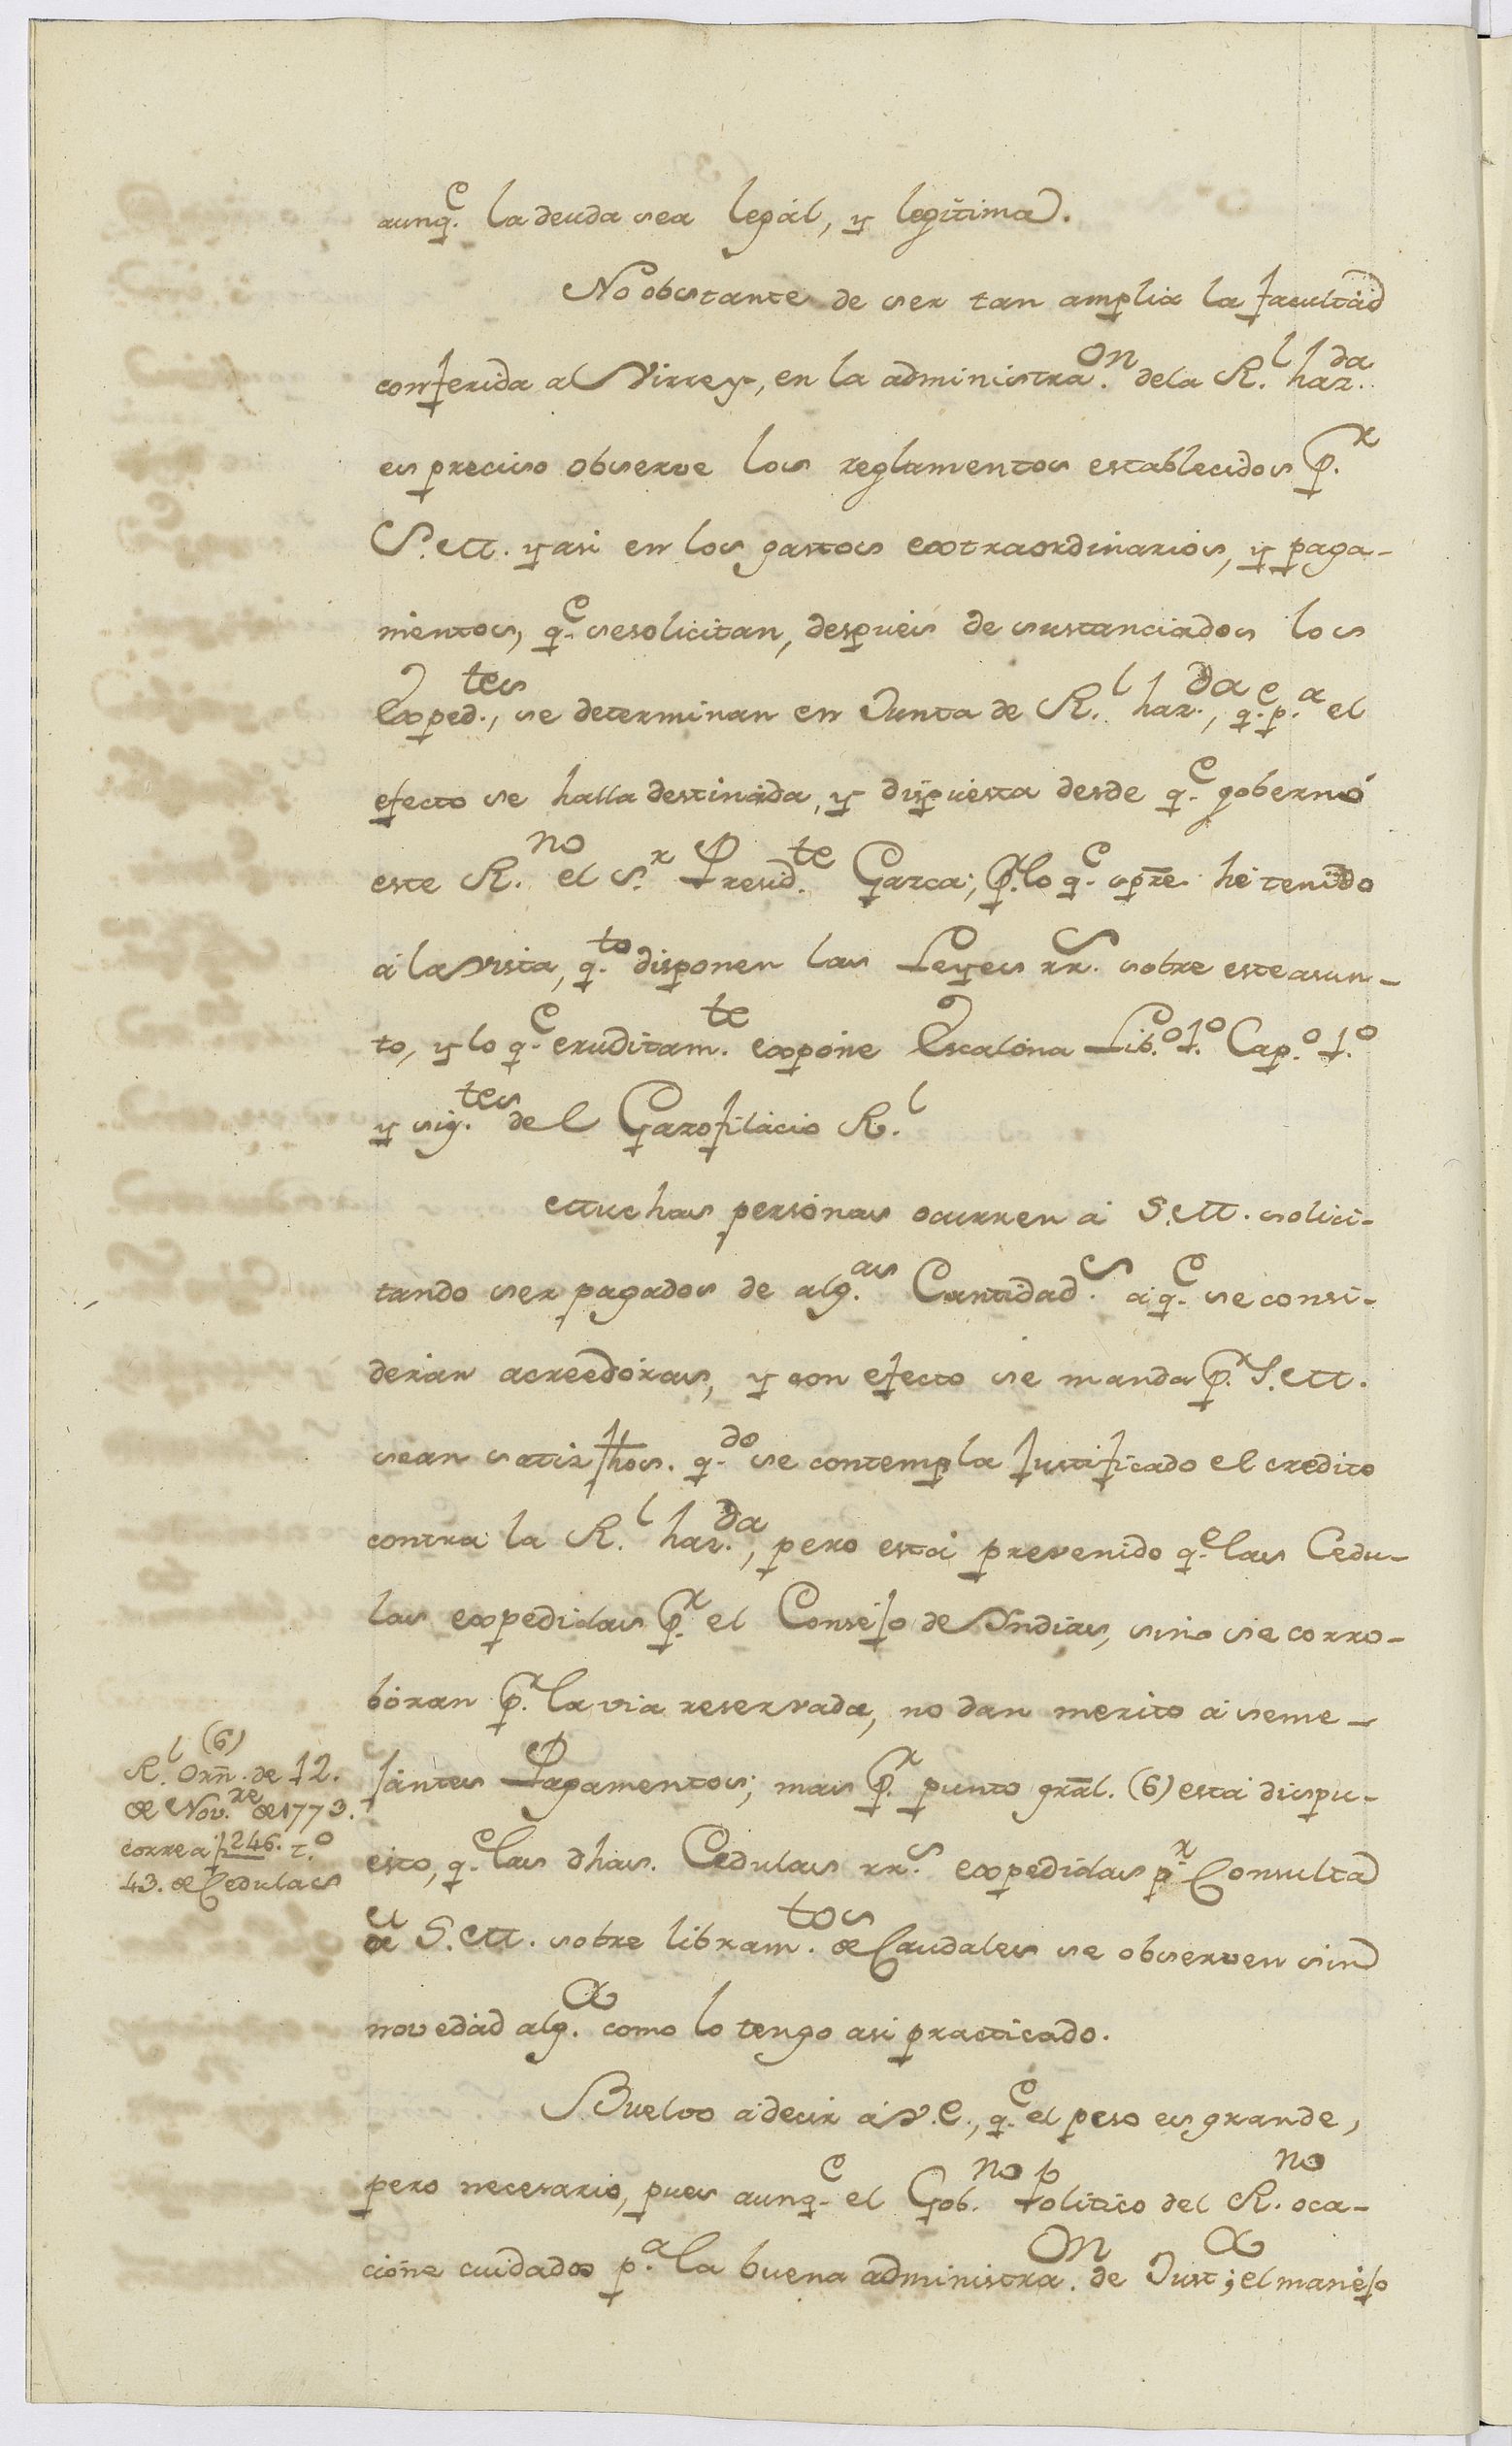 aunq.e la deuda sea legál, y legítima.
No obstante de ser tan amplia la facultad
conferida al Virrey, en la administra.on de la R.l haz.da
es preciso observe los reglamentos establecidos p.r
S. M. y asi en los gastos extraordinarios, y paga-
mentos, q.e se solicitan, despues de sustanciados los
Exped.tes, se determinan en Junta de R.l haz.da, q.e p.a el
efecto se halla destinada, y dispuesta desde q.e gobernó
este R.no el S.r Presid.te Gasca; p.r lo q.e spre. hé tenido
á la vista, q.to disponen las Leyes rr.s sobre este asun-
to, y lo q.e eruditam.te expone Escalona Lib.o 1.o Cap.o 1.o
y sig.tes del Garofilacio R.l
Muchas personas ocurren á S. M. solici-
tando ser pagados de alg.as Cantidad.s á q.e se consi-
deran acreedoras, y con efecto se manda p.r S. M.
sean satisfhos. q.do se contempla justificado el credito
contra la R.l haz.da, pero está prevenido q.e las Cedu-
las expedidas p.r el Consejo de Yndias, sino se corro-
boran p.r la via reservada, no dan merito á seme-
jantes Pagamentos; mas p.r punto gral. (6) está dispu-
esto, q.e las dhas. Cedulas rr.s expedidas p.r Consulta
de S. M. sobre libram.tos de Caudales se observen sin
novedad alg.a como lo tengo asi practicado.
Buelvo á decir á V.E., q.e el peso es grande,
pero necesario, pues aunq.e el Gob.no politico del R.no oca-
cione cuidados p.a la buena administra.on de Just.a; el manejo
(6)
R.l Orn. de 12.
de Nov.re de 1773.
corre a f 246. t.o
43. de Cedulas